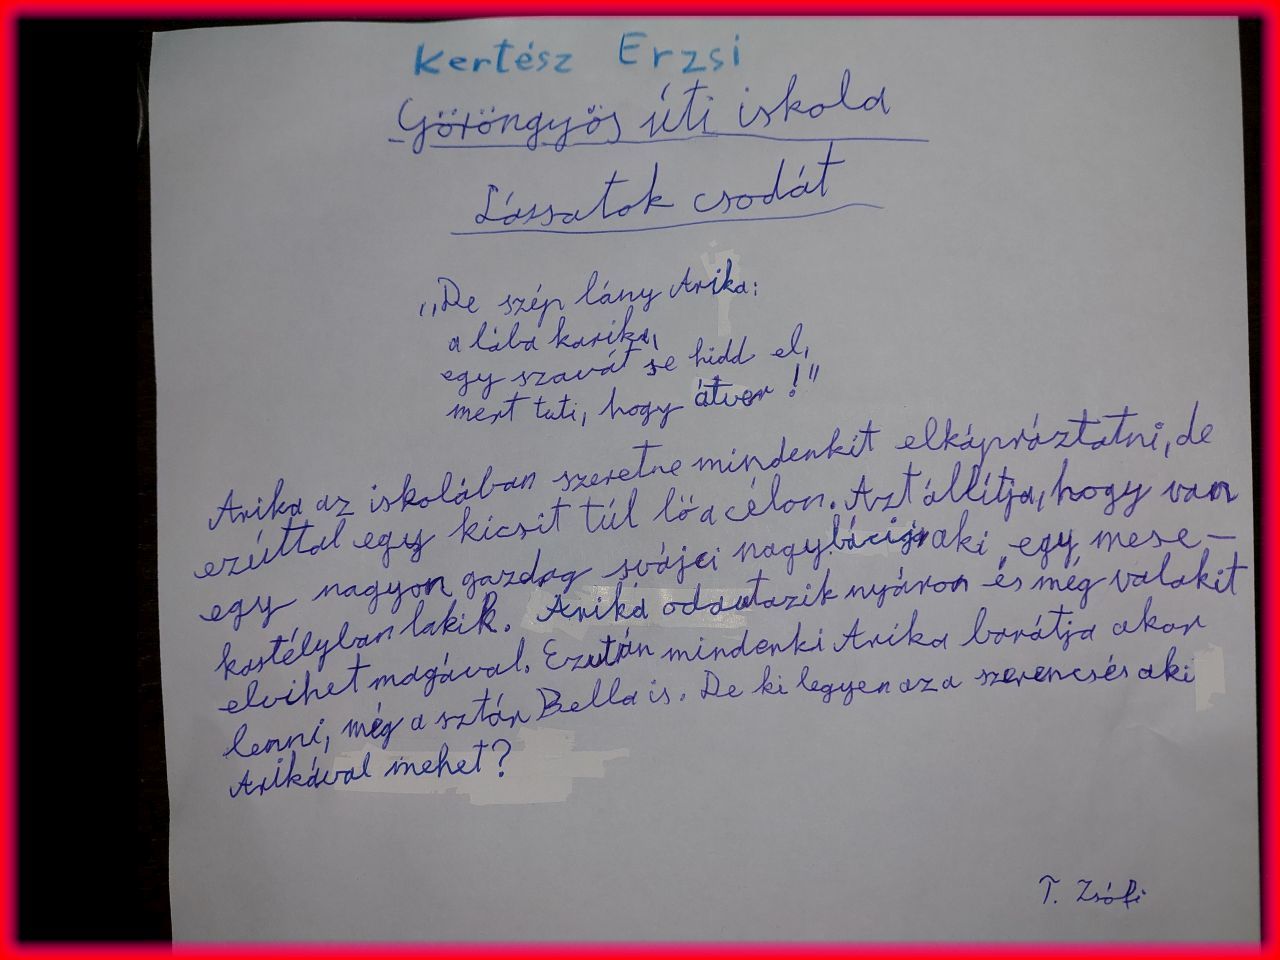 Kertész Erzsi
Göröngyös úti iskola
Lássatok csodát
„De szép lány Arika:
a lába karika,
egy szavát se hidd el,
mert tuti, hogy átver!"
Arika az iskolában szeretne mindenkit elkápráztatni, de
ezúttal egy kicsit túl lő a célon. Azt állítja, hogy van
egy nagyon gazdag svájci nagybácija aki egy mese-
kastélyban lakik. Arika odautazik nyáron és még valakit
elvihet magával. Ezután mindenki Arika barátja akar
lenni, még a sztár Bella is. De ki legyen az a szerencsés aki
Arikával mehet?
T. Zsófi